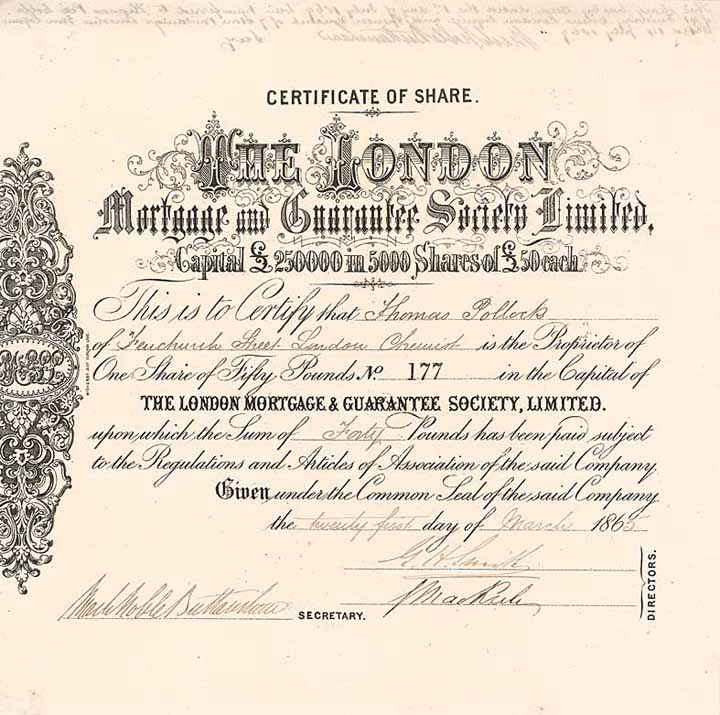 CERTIFICATE OF SHARE.
THE LONDON
Mortgage and Guarantee Society Limited,
Capital £250000 in 5000 Shares of £50 each
This is to Certify that Thomas Pollock
of Fenchurch Street London Chemist is the Proprietor of
One Share of Fifty Pounds No 177 in the Capital of
THE LONDON MORTGAGE & GUARANTEE SOCIETY, LIMITED.
upon which the Sum of Forty Pounds has been paid subject
to the Regulations and Articles of Association of the said Company.
Given under the Common Seal of the said Company
the twenty first day of March 1865
G. H. Smith
DIRECTORS.
Mark Noble
SECRETARY.